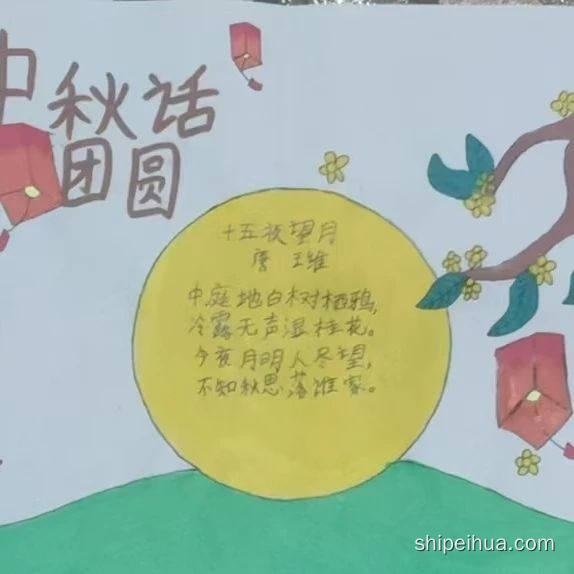 中秋话
团圆
十五夜望月
唐 王维
中庭地白树栖鸦,
冷露无声湿桂花。
今夜月明人尽望,
不知秋思落谁家。
shipeihua.com